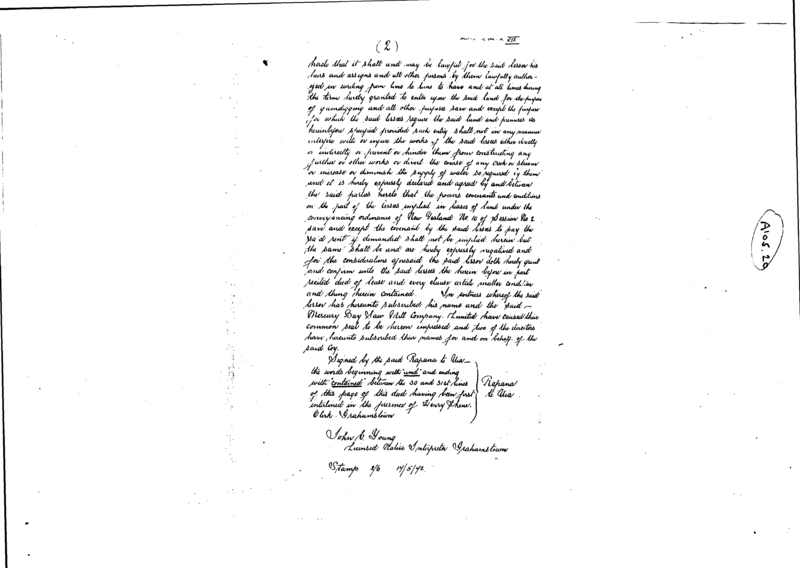 (2)
XIX
hereto that it shall and may be lawful for the said lessor his
heirs and assigns and all other persons by them lawfully author-
ized in writing from time to time to have and at all times during
the term hereby granted to enter upon the said land for the purpose
of gumdigging and all other purposes save and except the purpose
for which the said lessees require the said land and premises as
hereinbefore specified provided such entry shall not in any manner
interfere with or injure the works of the said lessees either directly
or indirectly or prevent or hinder them from constructing any
further or other works or divert the course of any creek or stream
or increase or diminish the supply of water so required by them
and it is hereby expressly declared and agreed by and between
the said parties hereto that the powers covenants and conditions
on the part of the lessees implied in leases of land under the
conveyancing ordinance of New Zealand No 10 of Session No 2
save and except the covenant by the said lessees to pay the
said rent if demanded shall not be implied herein but
the same shall be and are hereby expressly negatived and
for the considerations aforesaid the said lessor doth hereby grant
and confirm unto the said lessees the herein before in part
recited deed of lease and every clause article matter condition
and thing herein contained. In witness whereof the said
lessor has hereunto subscribed his name and the said -
Mercury Bay Saw Mill Company. Limited have caused their
common seal to be hereon impressed and two of the directors
have hereunto subscribed their names for and on behalf of the
said Coy.
Signed by the said Rapana te Uia -
the words beginning with "and" and ending
with "contained" between the 30 and 31st lines
of this page of this deed having been first
interlined in the presence of Henry
Clerk. Grahamstown
Rapana
te Uia
John C Young
Licensed Native Interpreter Grahamstown
Stamp 2/6 17/5/72
A105.20